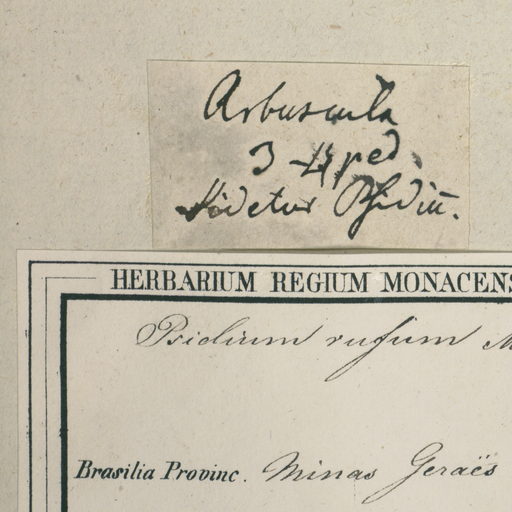 Arbuscula
3-4 ped.
Videtur Psidiū.
HERBARIUM REGIUM MONACENS
Psidium rufum M
Brasilia Provinc. Minas Geraës